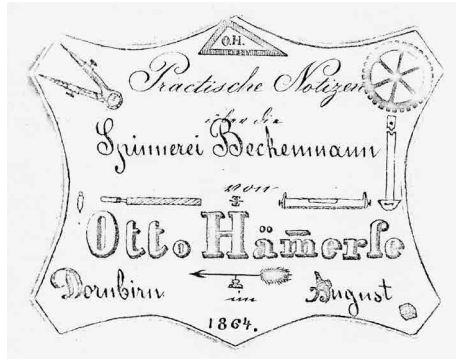 O.H.
Practische Notizen
über die
Spinnerei Beckenmann
von
Otto Häm̄erle
Dornbirn im August
1864.